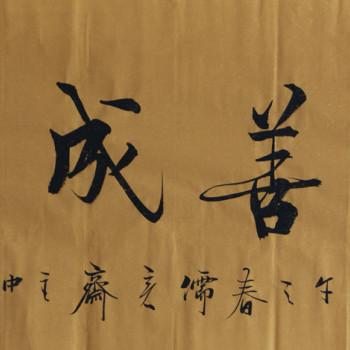 善成
午之春儒齋主